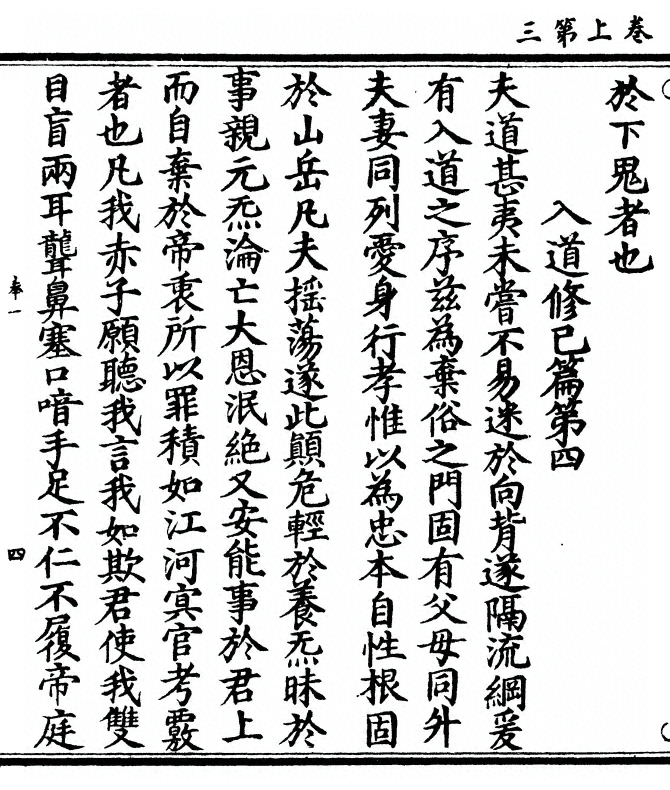 卷上第三
於下鬼者也
入道修己篇第四
夫道甚夷未嘗不易迷於向背遂隔流綱爰
有入道之序茲為棄俗之門固有父母同外
夫妻同列愛身行孝惟以為忠本自性根固
於山岳凡夫搖蕩遂此顛危輕於養炁昧於
事親元炁淪亡大恩泯絕又安能事於君上
而自棄於帝衷所以罪積如江河寞官考覈
者也凡我赤子願聽我言我如欺君使我雙
目盲兩耳聾鼻塞口喑手足不仁不履帝庭
奉一
四